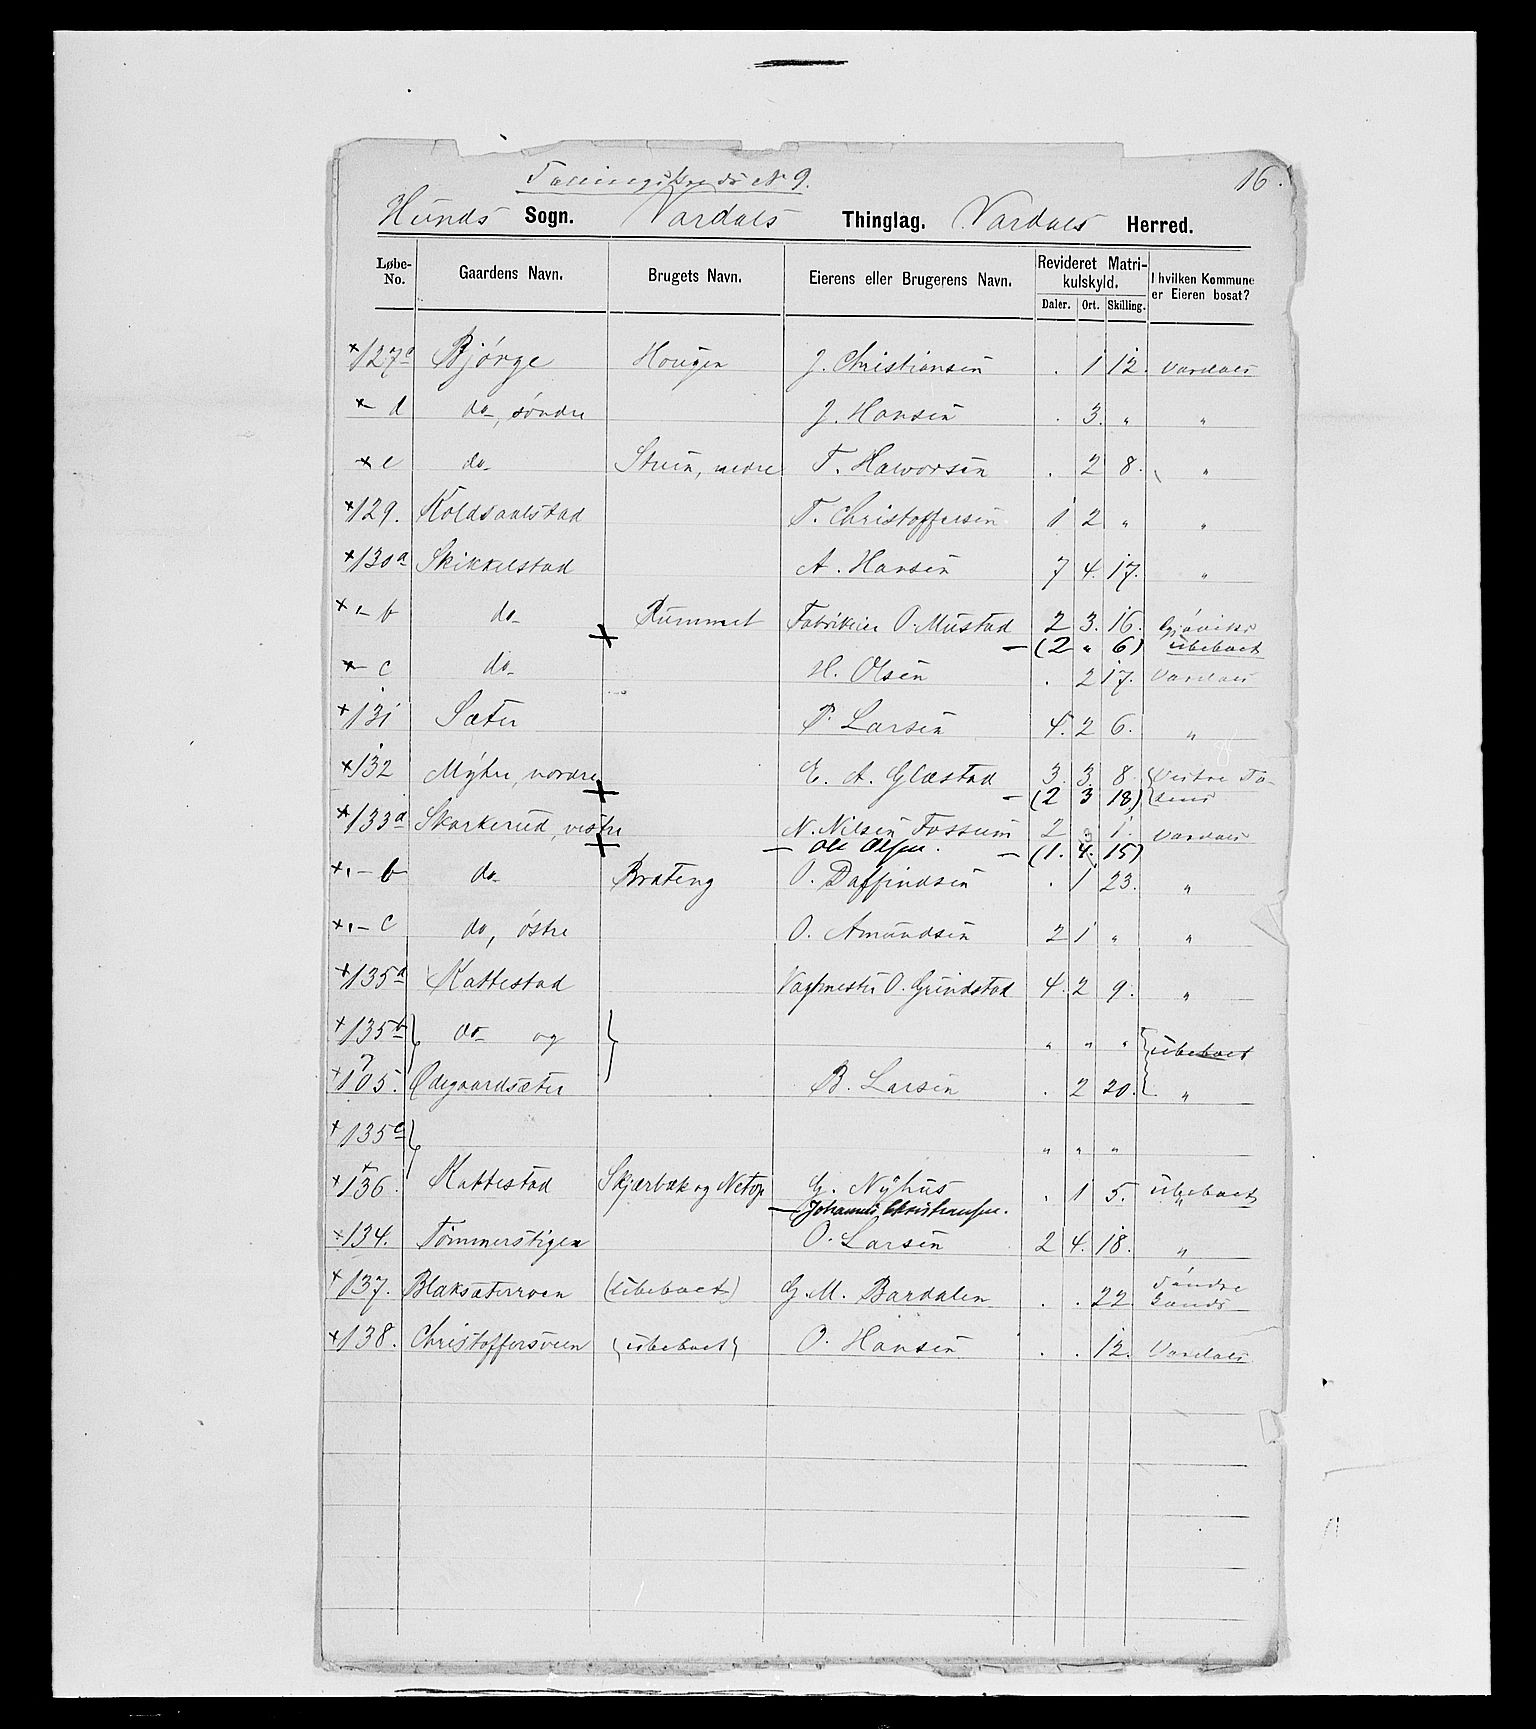 Tællingskreds No 9.
16.
Hunds Sogn. Vardals Thinglag. Vardals Herred.
Løbe-No. Gaardens Navn. Brugets Navn. Eierens eller Brugerens Navn. Revideret Matrikulskyld. Daler. Ort. Skilling. I hvilken Kommune er Eieren bosat?
×127c Bjørge Hougen J. Christiansen . 1 12. Vardals
×- d do, søndre J. Hansen . 3. " "
×- e do Stuen, nedre T. Haworsen . 2 8. "
×129. Koldsaalstad T. Christoffersen 1 2 " "
×130a Skikkelstad A. Hansen 7 4. 17. "
×"- b do Rummet Fabrikeier O. Mustad 2 3. 16. Gjøviks
× - (2 " 6) ubeboet
×- c do H. Olsen . 2 17. Vardals
×131 Sæter P. Larsen 4. 2 6. "
×132 Myhre, nordre E. A. Glæstad 3. 3. 8. Vestre To-
× - (2 3 18) tens
×133a Skarkerud, vestre N. Nilsen Fossum 2 " 1. Vardals
× - Ole Olsen. - (1. 4. 15)
×"- b do Brateng O. Daffindsen . 1 23. "
×"- c do, østre O. Amundsen 2 1 " "
×135a Kattestad Vagtmester O. Grindstad 4. 2 9. "
×135b do og " " " ubeboet
×105. Ødegaardsæter B. Larsen . 2 20. "
×135c " " "
×136. Kattestad Skjærbæk og Netop G. Nyhus . 1 5. ubeboet
- Johannes Christiansen. "
×134. Tømmerstigen O. Larsen 2 4. 18. "
×137. Blaksæterroen (ubeboet) G. M. Bardalen . . 22 Søndre Lands
×138. Christoffersveen (ubeboet) O. Hansen . . 12. Vardals